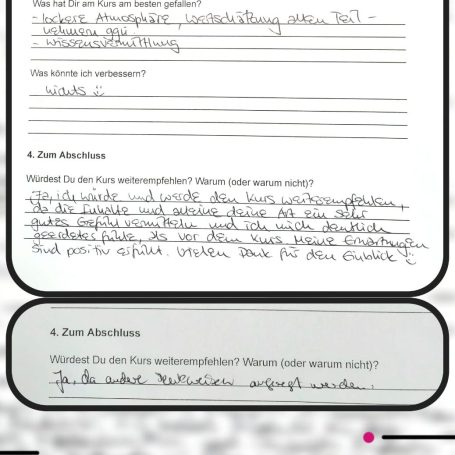 Was hat Dir am Kurs am besten gefallen?
- lockere Atmosphäre, Wertschätzung allen Teil-
nehmern ggü.
- Wissensvermittlung
Was könnte ich verbessern?
nichts ☺
4. Zum Abschluss
Würdest Du den Kurs weiterempfehlen? Warum (oder warum nicht)?
Ja, ich würde und werde den Kurs weiterempfehlen,
da die Inhalte und alleine deine Art ein sehr
gutes Gefühl vermitteln und ich mich deutlich
geerdeter fühle, als vor dem Kurs. Meine Erwartungen
sind positiv erfüllt. Vielen Dank für den Einblick ☺
4. Zum Abschluss
Würdest Du den Kurs weiterempfehlen? Warum (oder warum nicht)?
Ja, da andere Denkweisen angeregt werden.